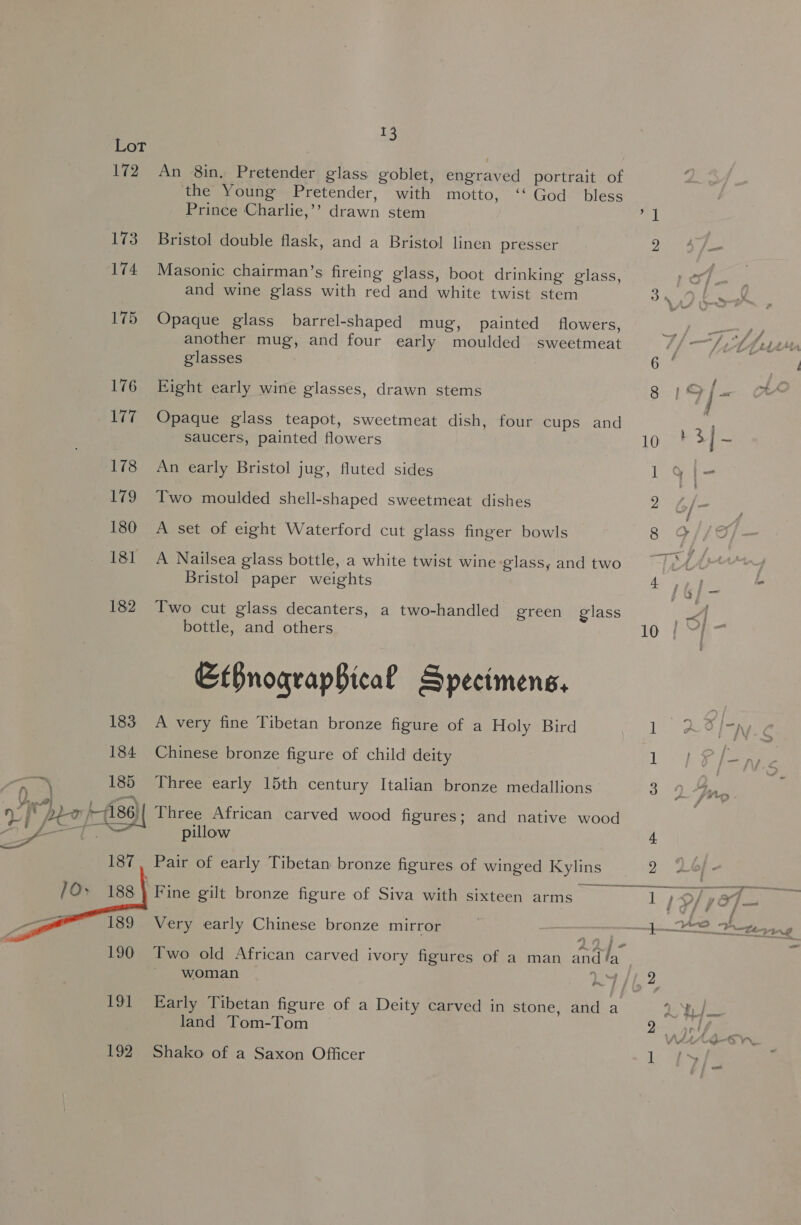 13
Lot
172 An 8in. Pretender glass goblet, engraved portrait of
the Young Pretender, with motto, “ God bless
Prince Charlie,” drawn stem 1
173 Bristol double flask, and a Bristol linen presser 2
174 Masonic chairman’s fireing glass, boot drinking glass,
and wine glass with red and white twist stem 3
175 Opaque glass barrel-shaped mug, painted flowers,
another mug, and four early moulded sweetmeat
glasses 6
176 Eight early wine glasses, drawn stems 8
177 Opaque glass teapot, sweetmeat dish, four cups and
saucers, painted flowers 10
178 An early Bristol jug, fluted sides 1
179 Two moulded shell-shaped sweetmeat dishes 2
180 A set of eight Waterford cut glass finger bowls 8
181 A Nailsea glass bottle, a white twist wine glass, and two
Bristol paper weights 4
182 Two cut glass decanters, a two-handled green glass
bottle, and others 10
Ethnographical Specimens.
183 A very fine Tibetan bronze figure of a Holy Bird 1
184 Chinese bronze figure of child deity 1
185 Three early 15th century Italian bronze medallions 3
186 Three African carved wood figures; and native wood
pillow 4
187 Pair of early Tibetan bronze figures of winged Kylins 2
188 Fine gilt bronze figure of Siva with sixteen arms 1
189 Very early Chinese bronze mirror 1
190 Two old African carved ivory figures of a man and a
woman 2
191 Early Tibetan figure of a Deity carved in stone, and a
land Tom-Tom 2
192 Shako of a Saxon Officer 1